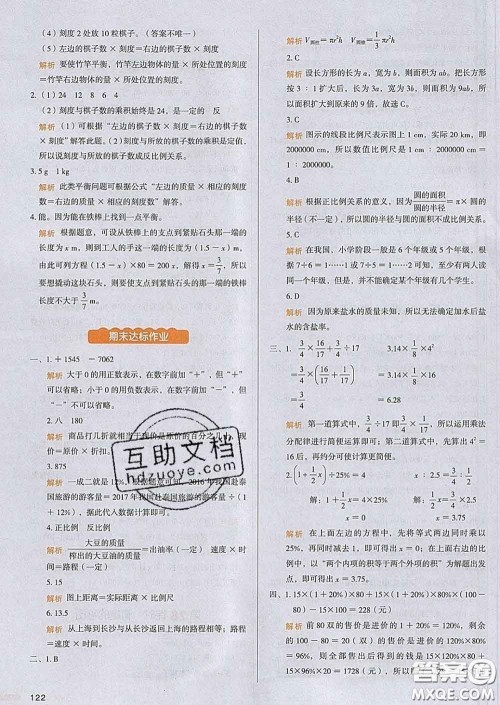 （4）刻度 2 处放 10 粒棋子。（答案不唯一）
（5）左边的棋子数×刻度=右边的棋子数×刻度
解析 要使竹竿平衡，竹竿左边物体的量×所处的刻度
=竹竿右边物体的量×所处的刻度。
2.（1）24 12 8 6 4
（2）刻度与棋子数的乘积始终是 24，是一定的 反
解析（1）可根据“左边的棋子数×刻度=右边的棋子
数×刻度”解答此题。（2）刻度与所放的棋子数的乘积是定值，
所以说刻度与所放棋子数成反比例关系。
3.5 g 1 g
解析 此类平衡问题可根据公式“左边的质量×相应的刻度
数=右边的质量×相应的刻度数”解答。
4. 能。方法：能在铁棒上找到一点平衡。
解析 根据题意，可设从铁棒上的支点到紧贴石头那一端的
长度为 x m，则到工人的手这一端的长度为（1.5－x）m，
由此可列方程（1.5－x）×80＝200x，解得 x＝3/7。所以
要想撬动这块石头，从铁棒上的支点到紧贴石头那一端的铁棒
长度不大于 3/7 m。
期末达标作业
一、1.＋1545 －7062
解析 大于 0 的用正数表示，在数字前加“＋”，但“＋”
可以省略；小于 0 的用负数表示，在数字前加“－”，但
“－”不可以省略。
2. 八 180
解析 商品打几折就相当于现价是原价的百分之几十，现
价=原价×折扣。
3. 875
解析 一成二就是 12%，根据题意可知，2016 年我国赴泰
国旅游的游客量=2017 年我国赴泰国旅游的游客量÷（1＋
12%），据此代入数据计算即可。
4. 正比例 反比例
解析 大豆的质量/榨出的大豆油的质量=出油率（一定） 速度×时
间=路程（一定）
5. 15
解析 图上距离=实际距离×比例尺
6. 13.5
解析 从上海到长沙与从长沙返回上海的路程相等，路程
=速度×时间。
二、1. B
122
解析 V圆柱=πr²h V圆锥=1/3πr²h
2. C
解析 设长方形的长为 a，宽为 b，则面积为 ab。把长方形按
3∶1 扩大后，长为 3a，宽为 3b，则面积为 9ab，所以面
积扩大到原来的 9 倍，故选 C。
3. C
解析 图示的线段比例尺表示图上 1 cm，实际 20 km，即
2000000 cm，所以数值比例尺是 1 cm∶2000000 cm＝1∶
2000000。
4. B
解析 根据正比例关系的意义，因为圆的面积/圆的半径＝π×圆的
半径（不一定），所以圆的半径与圆的面积不成比例关系。
5. D
解析 在我国，小学阶段一般包括 6 个年级或 5 个年级，根
据 7÷6＝1……1 或 7÷5＝1……2 可知，至少有两人读
同一个年级，但并不能确定某个年级有几名学生。
6. D
解析 因为原来盐水的质量未知，所以无法确定溶解后的
含盐率。
三、1. 3/4×16/17＋3/4÷17 3.14×1/8×4²
＝3/4×（16/17＋1/17） ＝3.14×1/8×16
＝3/4 ＝6.28
解析 第一道算式中，3/4÷17＝3/4×1/17，所以运用乘法
分配律进行简便运算即可；第二道算式中，先算出 4²＝
16 后再约分计算即可。
2.（1＋1/2x）÷25%＝4 2.4∶x＝4/5∶1/8
解：1＋1/2x＝1 解：4/5x＝2.4×1/8
x＝0 x＝3/8
解析 在上面左边的方程中，先将等式两边同时乘以
25%，再同时减去 1，即可求出 x＝0；在上面右边的比例
中，以“两个内项的积等于两个外项的积”为解题出发
点，即可求出 x＝3/8。
四、1.15×（1＋20%）×80＋15×（1＋20%）×80%×（100－80）
－15×100＝228（元）
解析 前 80 双的售价是进价的 1＋20%＝120%，剩下
的 100－80＝20（双）的售价是进价的 120%×80%＝
96%，则全部售出后得到的钱数为 15×120%×80＋
15×96%×20＝1728（元），所以
互助文档
hdzuoye.com
答案圈
MXQE.COM